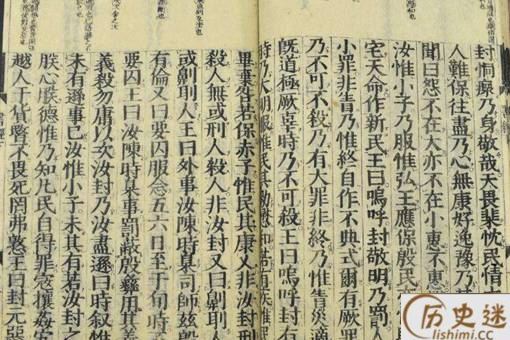 封恫瘝乃身敬哉天畏棐忱民情
人難保往盡乃心無康好逸豫乃
聞曰怨不在大亦不在小惠不惠
汝惟小子乃服惟弘王應保殷民
宅天命作新民王曰嗚呼封敬明乃罰
小罪非眚乃惟終自作不典式爾有厥
乃不可不殺乃有大罪非終乃惟眚災適
既道極厥辜時乃不可殺王曰嗚呼封
時乃大明服惟民其勑懋和若有疾惟民
畢棄咎若保赤子惟民其康乂非汝封刑
殺人無或刑人殺人非汝封又曰劓刵人
或劓刵人王曰外事汝陳時臬司師茲殷
有倫又曰要囚服念五六日至于旬時
要囚王曰汝陳時臬事罰蔽殷彝用其義
義殺勿庸以次汝封乃汝盡遜曰時敘
未有遜事已汝惟小子未其有若汝封之
朕心朕德惟乃知凡民自得罪寇攘姦
越人于貨暋不畏死罔弗憝王曰封元惡
历史迷
lishimi.cc